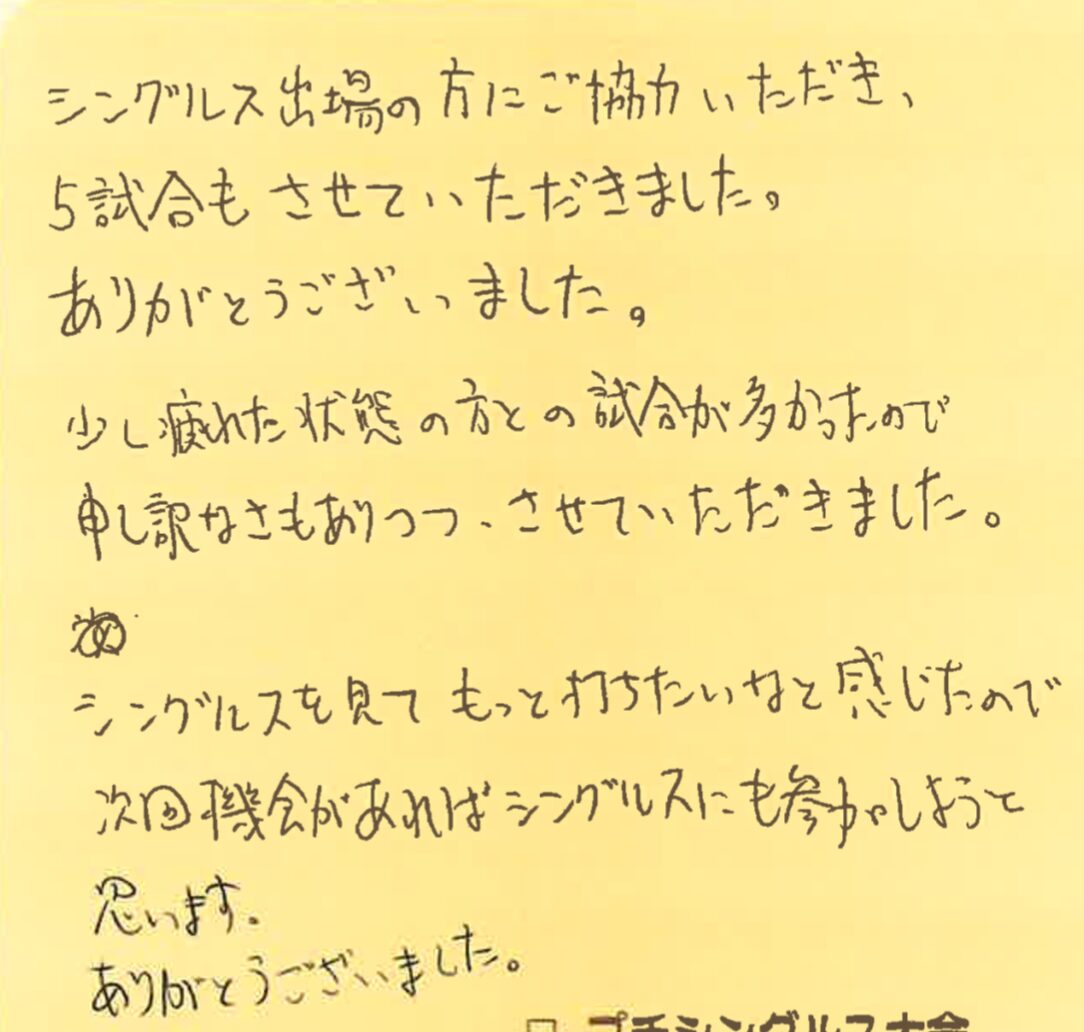 シングルス出場の方にご協力いただき、
5試合もさせていただきました。
ありがとうございました。
少し疲れた状態の方との試合が多かったので
申し訳なさもありつつ、させていただきました。
シングルスを見てもっと打ちたいなと感じたので
次回機会があればシングルスにも参加しようと
思います。
ありがとうございました。
□ プチシングルス大会